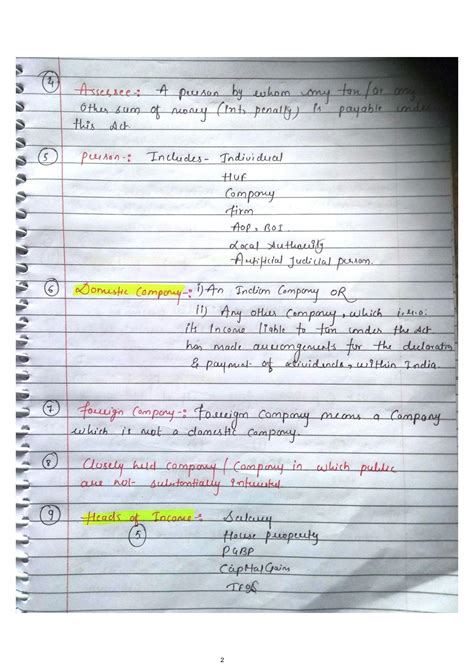 ④ Assessee:- A person by whom any tax/or any
other sum of money (Int, penalty) is payable under
this Act
⑤ Person-: Includes- Individual
HUF
Company
Firm
AOP, BOI
Local Authority
Artificial Judicial person.
⑥ Domestic Company-: i) An Indian Company OR
ii) Any other Company, which i.r.o.
its Income liable to tax under the Act
has made arrangements for the declaration
& payment of dividends, within India.
⑦ Foreign Company-: Foreign Company means a Company
which is not a domestic Company.
⑧ Closely held company / Company in which public
are not substantially interested
⑨ Heads of Income:- Salary
⑤ House property
PGBP
Capital Gains
IFOS
2